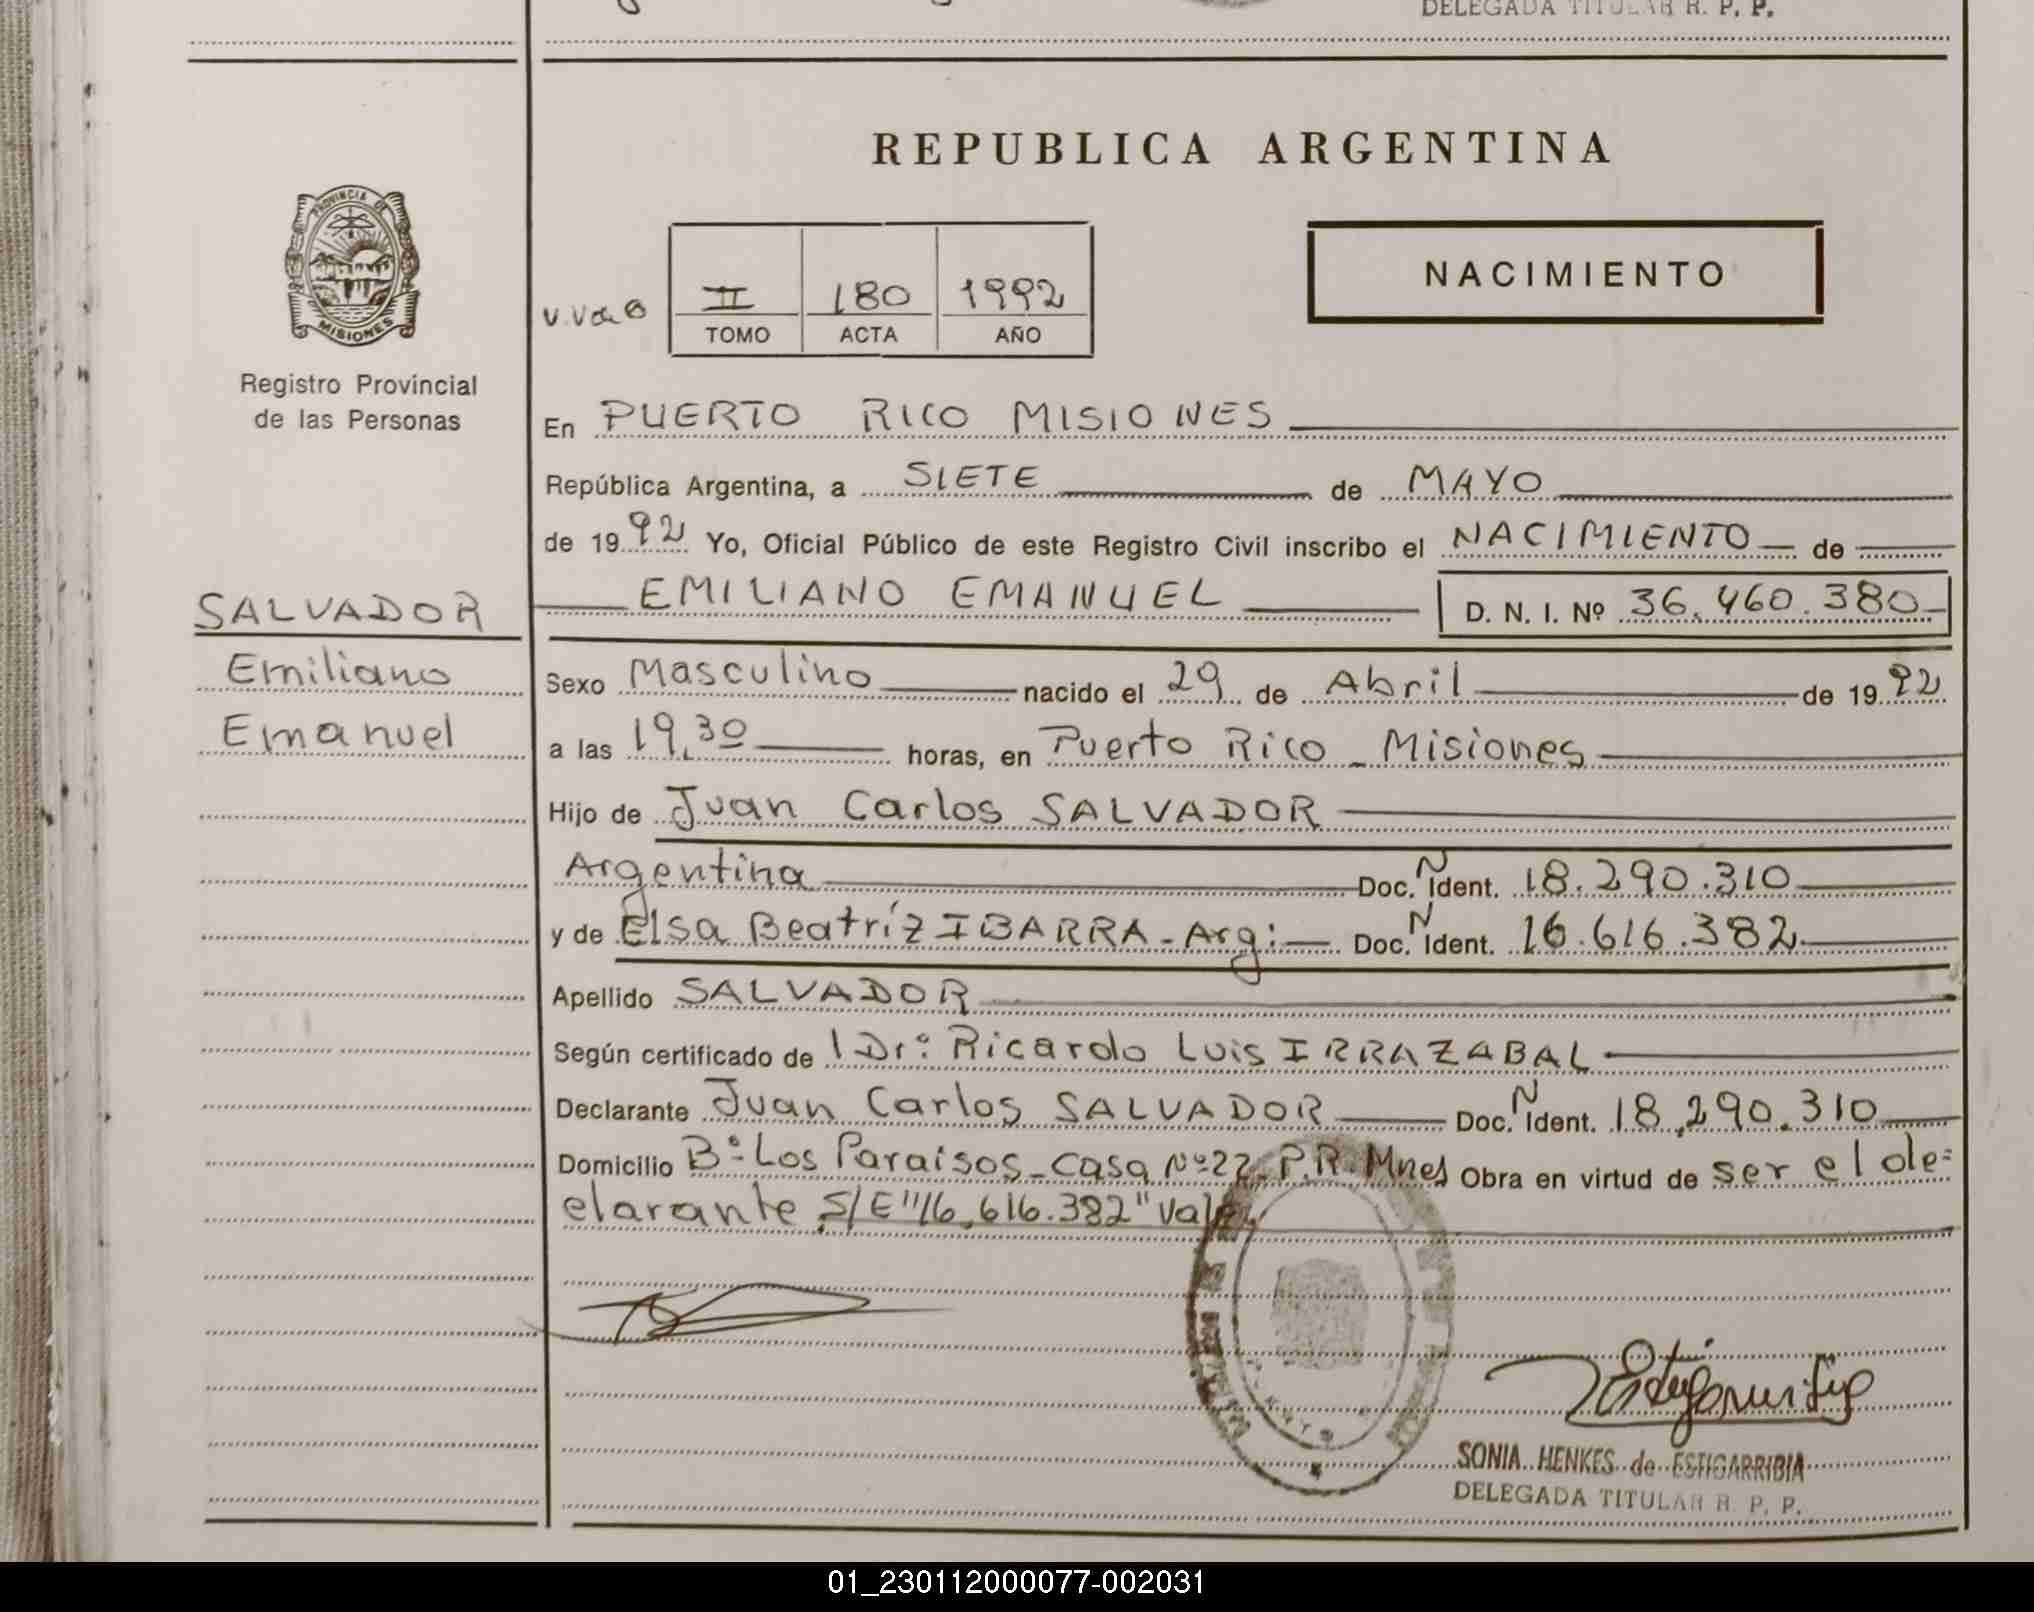 DELEGADA TITULAR R. P. P.
REPUBLICA ARGENTINA
PROVINCIA DE
MISIONES
Registro Provincial
de las Personas
II 180 1992
TOMO ACTA AÑO
NACIMIENTO
En PUERTO RICO MISIONES
República Argentina, a SIETE de MAYO
de 1992 Yo, Oficial Público de este Registro Civil inscribo el NACIMIENTO de
EMILIANO EMANUEL D. N. I. Nº 36.460.380
SALVADOR
Emiliano
Emanuel
Sexo Masculino nacido el 29 de Abril de 1992
a las 19,30 horas, en Puerto Rico - Misiones
Hijo de Juan Carlos SALVADOR
Argentina Doc. N Ident. 18.290.310
y de Elsa Beatríz IBARRA - Arg: Doc. N Ident. 16.616.382
Apellido SALVADOR
Según certificado de 1 Dr: Ricardo Luis IRRAZABAL
Declarante Juan Carlos SALVADOR Doc. N Ident. 18,290.310
Domicilio Bº Los Paraisos - Casa Nº 22 - P.R. Mnes Obra en virtud de ser el de=
clarante S/E "16.616.382" Vale
SONIA HENKES de ESTIGARRIBIA
DELEGADA TITULAR R. P. P.
01_230112000077-002031